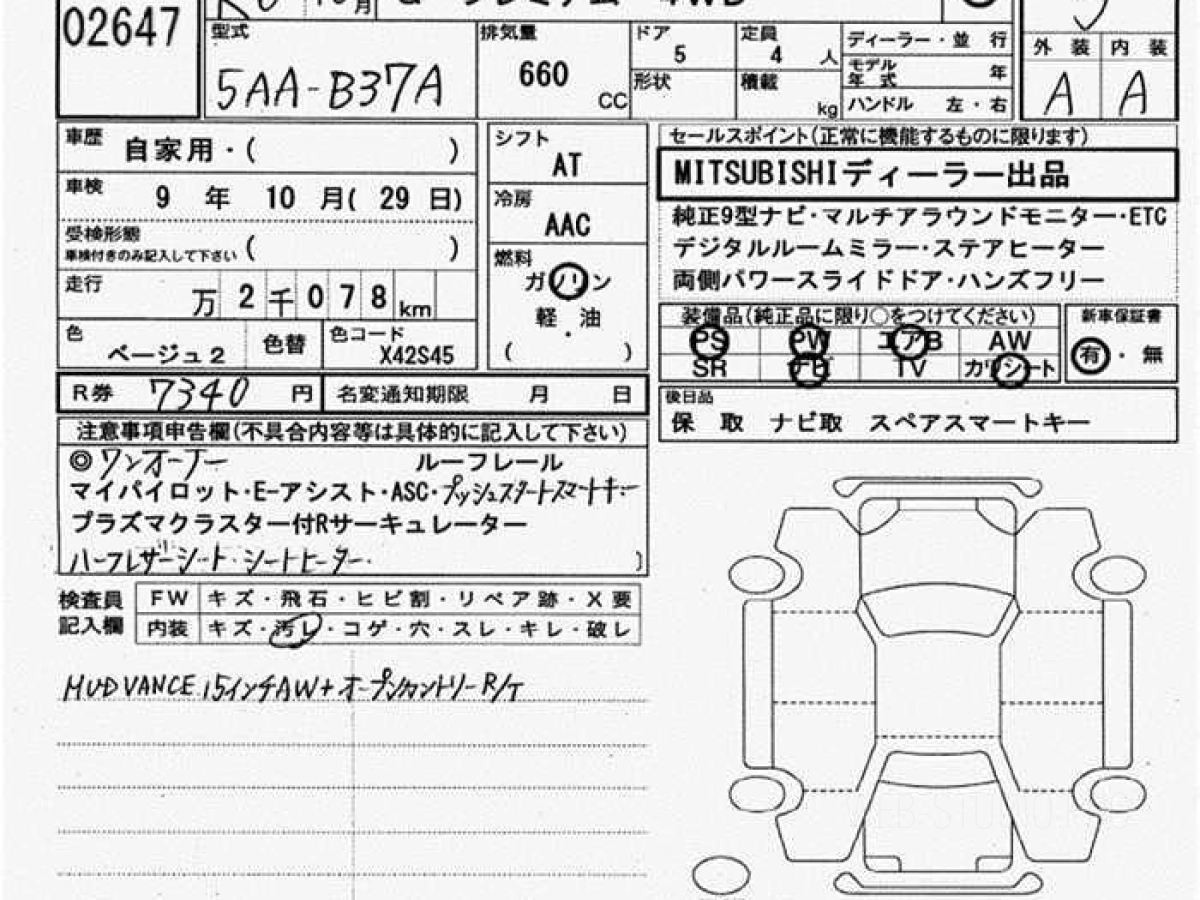 02647
型式
5AA-B37A
排気量
660
CC
ドア
5
形状
定員
4 人
積載
kg
ディーラー・並 行
モデル年式 年
ハンドル 左・右
外 装 内 装
A A
車歴
自家用・( )
車検
9 年 10 月( 29 日)
受検形態
車検付きのみ記入して下さい ( )
走行
万 2 千 0 7 8 km
色
ベージュ2
色替
色コード
X42S45
シフト
AT
冷房
AAC
燃料
ガソリン
軽・油
( )
セールスポイント(正常に機能するものに限ります)
MITSUBISHIディーラー出品
純正9型ナビ・マルチアラウンドモニター・ETC
デジタルルームミラー・ステアヒーター
両側パワースライドドア・ハンズフリー
装備品(純正品に限り○をつけてください)
PS PW エアB AW
SR ナビ TV カワシート
新車保証書
有・無
R券 7340 円
名変通知期限 月 日
後日品
保 取 ナビ取 スペアスマートキー
注意事項申告欄(不具合内容等は具体的に記入して下さい)
◎ワンオーナー ルーフレール
マイパイロット・E-アシスト・ASC・プッシュスタートスマートキー
プラズマクラスター付Rサーキュレーター
ハーフレザーシート・シートヒーター
検査員
記入欄
FW キズ・飛石・ヒビ割・リペア跡・X要
内装 キズ・汚レ・コゲ・穴・スレ・キレ・破レ
MUDVANCE 15インチAW+オープンカントリーR/T